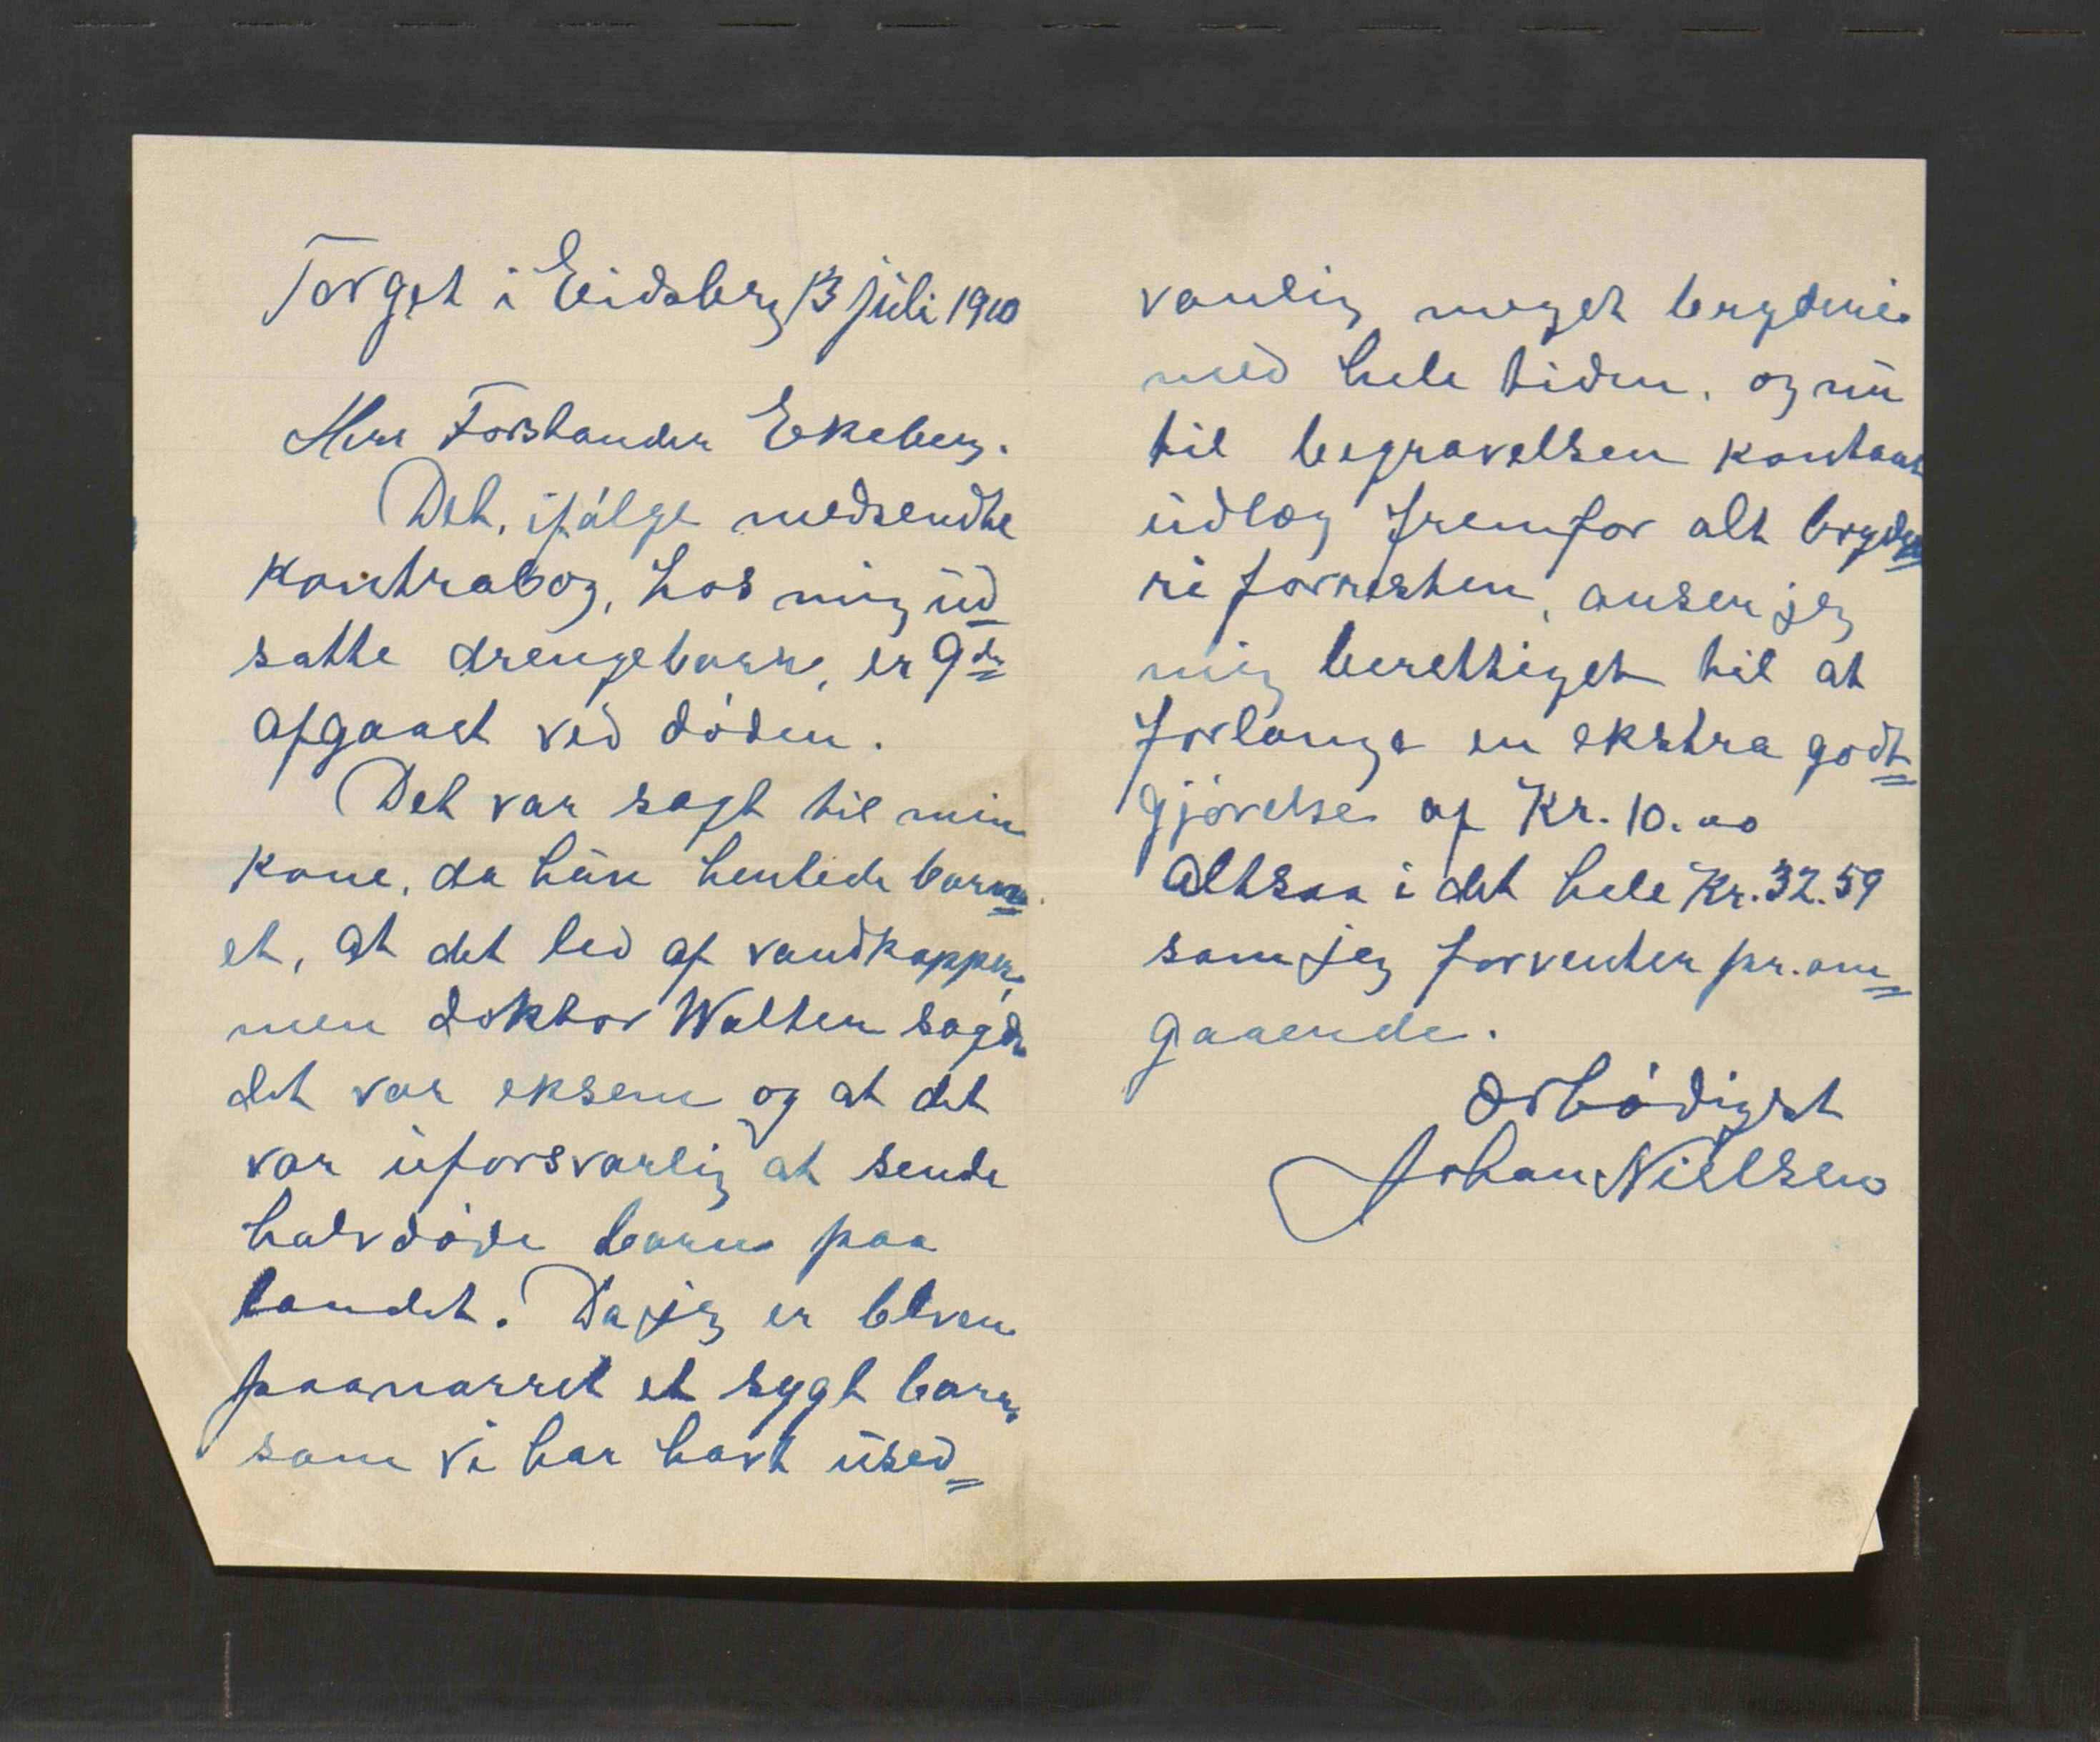 Torget i Eidsberg 13 juli 1910
Herr Forstander Ekeberg.
Det, ifølge medsendte
kontrabog, hos mig ud=
satte drengebarn, er 9de
afgaaet ved døden.
Det var sagt til min
kone, da hun hentede barn=
et, at det led af vandkopper,
men doktor Walter sagde
det var eksem og at det
var uforsvarlig at sende
halvdøde barn paa
landet. Da jeg er bleven
paanarret et sygt barn,
som vi har havt used=
vanlig meget bryderi
med hele tiden, og nu
til begravelsen kontant
udlæg fremfor alt bryde=
ri forresten, anser jeg
mig berettiget til at
forlange en ekstra godt=
gjørelse af Kr. 10.00
Altsaa i det hele Kr. 32.59
som jeg forventer pr. om=
gaaende.
Ærbødigst
Johan Nielsen